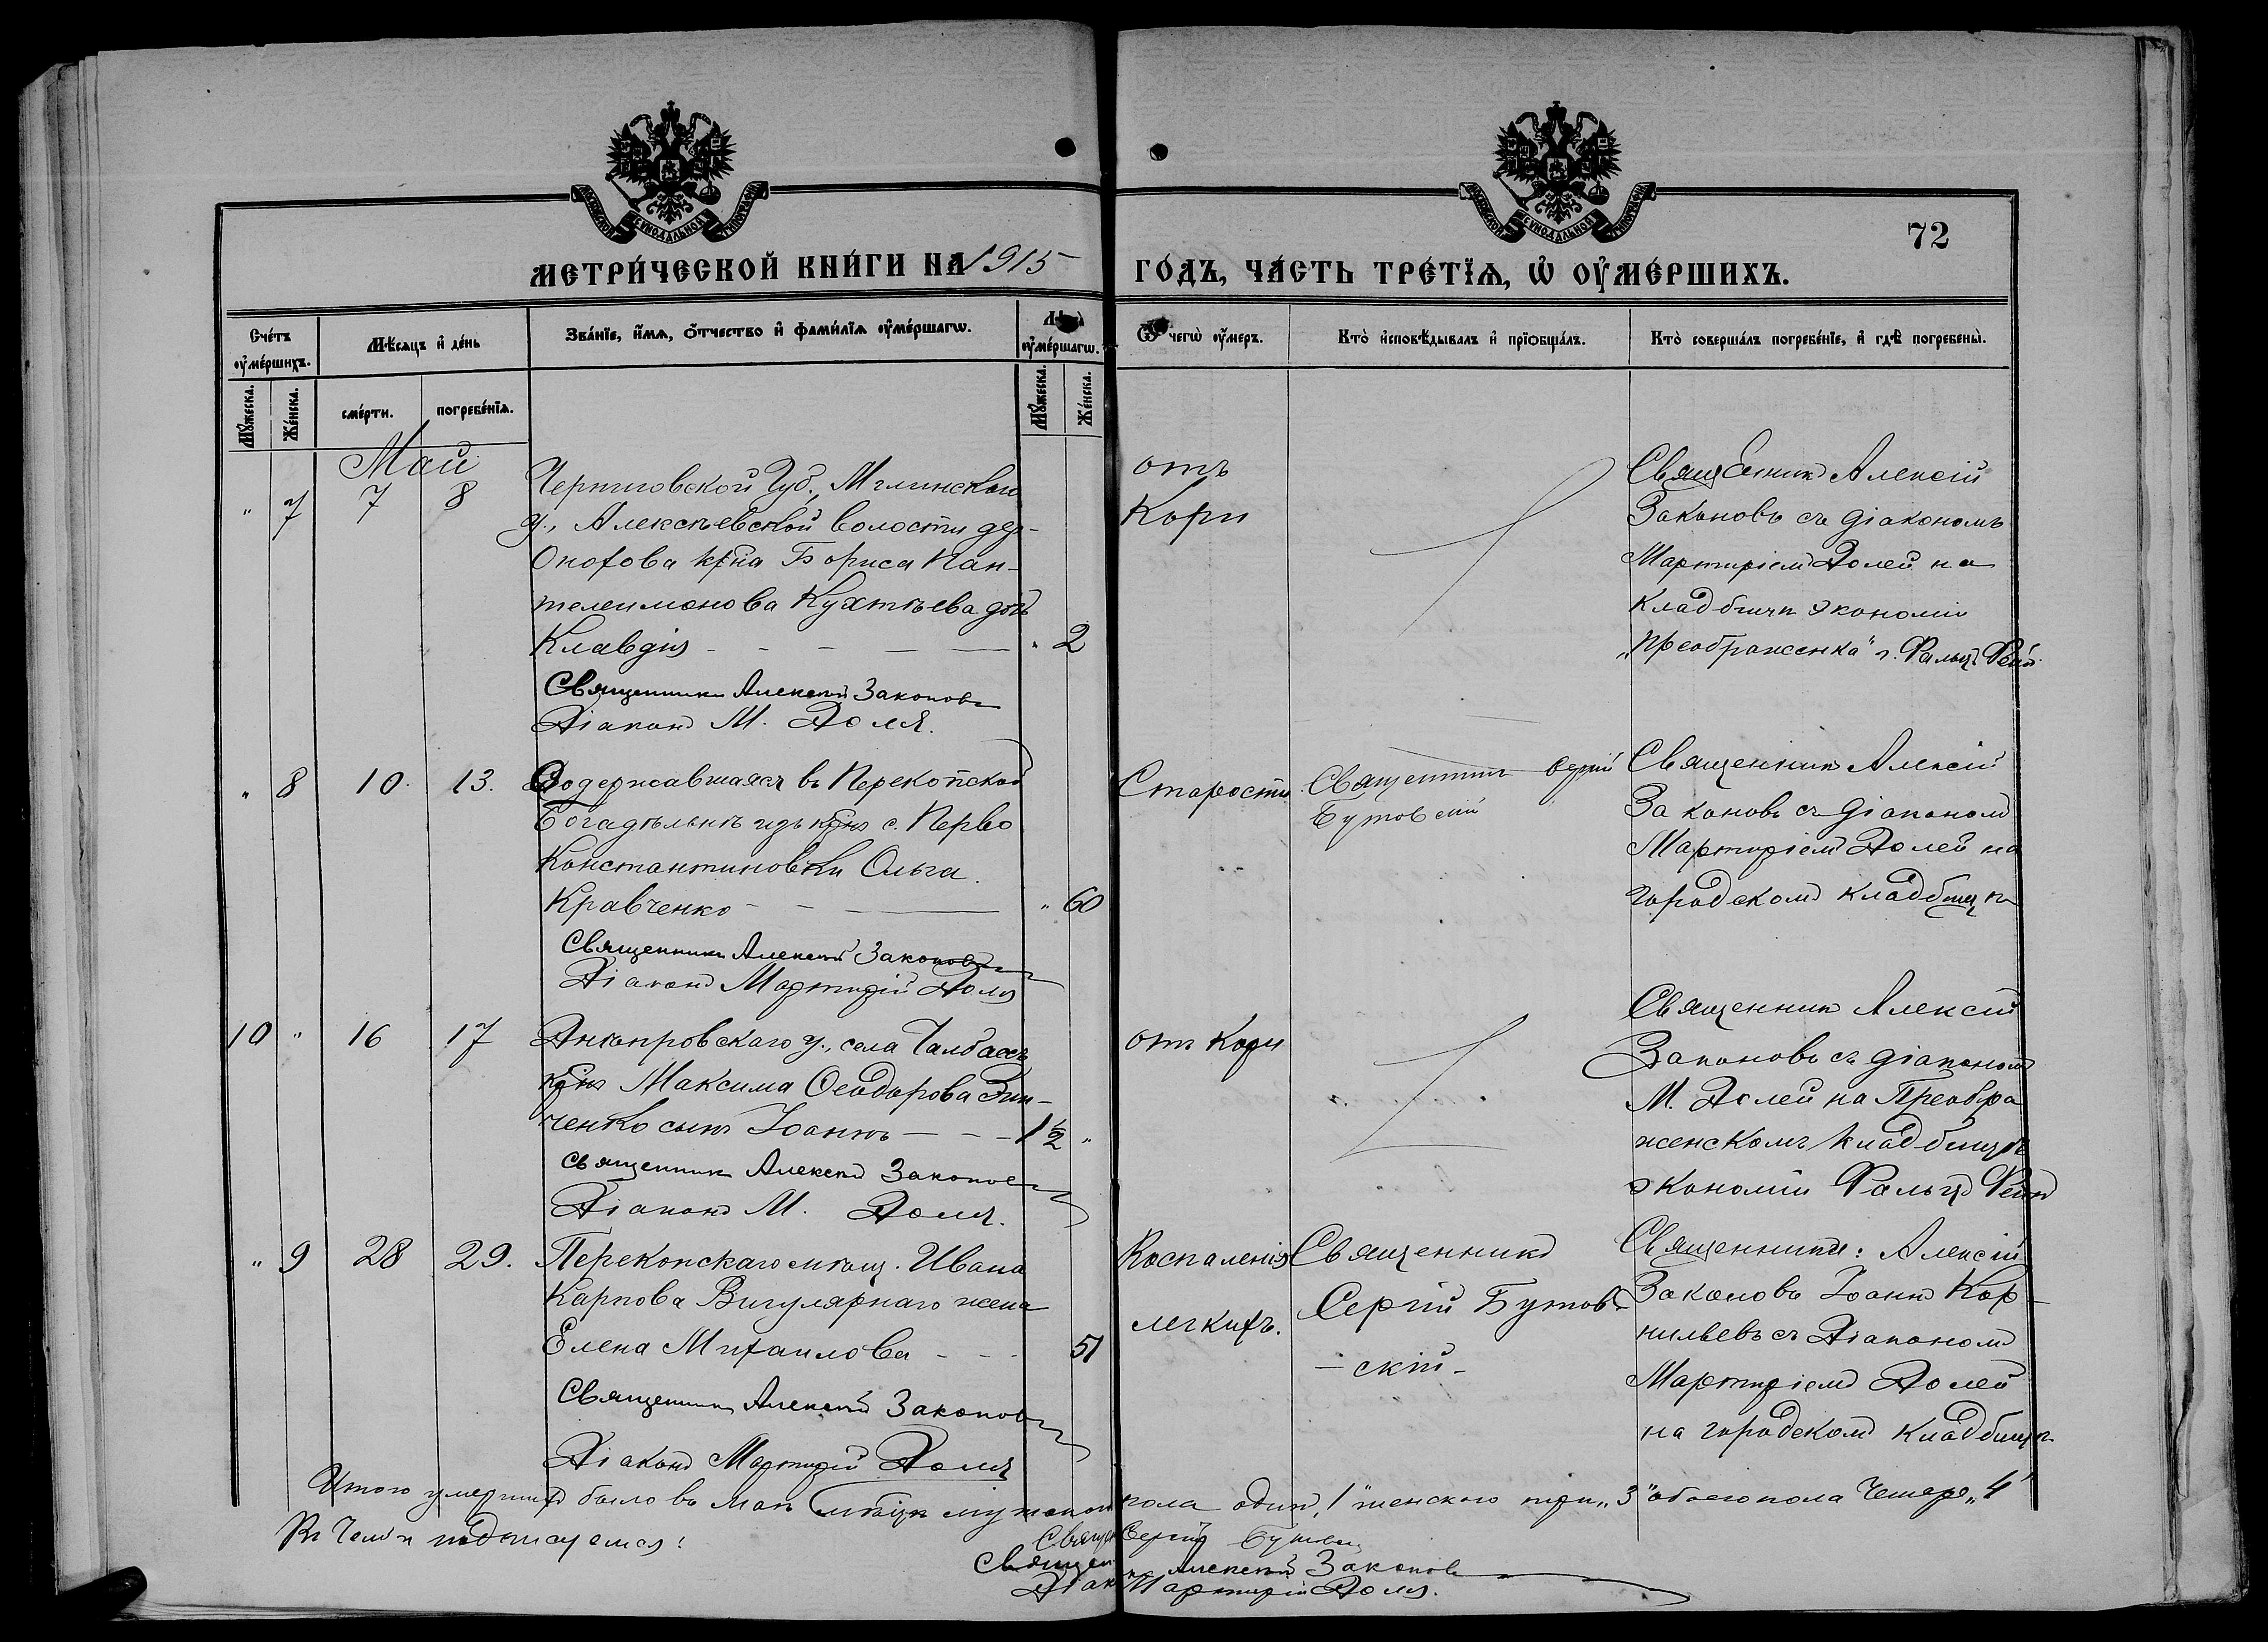 МОСКОВСКОЙ СѴНОДАЛЬНОЙ ТИПОГРАФІИ
МОСКОВСКОЙ СѴНОДАЛЬНОЙ ТИПОГРАФІИ
72
МЕТРИ́ЧЕСКОЙ КНИ́ГИ НА 1915 ГО́ДЪ, ЧА́СТЬ ТРЕ́ТЇѦ, Ѡ҆ ОУ҆МЕ́РШИХЪ.
Сче́тъ оу҆ме́ршихъ.
Мѣ́сѧцъ и҆ де́нь
Зва́нїе, и҆́мѧ, ѻ҆́тчество и҆ фами́лїѧ оу҆ме́ршагѡ.
Лѣ́та оу҆ме́ршагѡ.
Ѿ чегѡ̀ оу҆́меръ.
Кто̀ и҆сповѣ́дывалъ и҆ прїѡбща́лъ.
Кто̀ соверша́лъ погребе́нїе, и҆ гдѣ̀ погребены̀.
Мꙋ́жеска.
Же́нска.
сме́рти.
погребе́нїѧ.
Мꙋ́жеска.
Же́нска.
Май
" 7 7 8
Черниговской Губ., Мглинскаго
у., Алексѣевской волости дер-
Охотова кр-на Бориса Пан-
телеимонова Кухтѣева дочь
Клавдія - - - - " 2
Священникъ Алексій Законовъ
Діаконъ М. Доля.
отъ
Кори
Священникъ Алексій
Законовъ съ діакономъ
Мартиріемъ Долей на
кладбищѣ экономіи
„Преображенка" г. Фальцъ Фейн
" 8 10. 13.
Содержавшаяся въ Перекопской
богадѣльнѣ изъ кр-нъ с. Перво
Константиновки Ольга
Кравченко - - - " 60
Священникъ Алексій Законовъ
Діаконъ Мартирій Доля
Старости
Священникъ Сергій
Бутовскій
Священникъ Алексій
Законовъ съ діакономъ
Мартиріемъ Долей на
городскомъ кладбищѣ
10 " 16 17
Днѣпровскаго у., села Чалбассъ
кр-на Максима Ѳеодорова Зин-
ченко сынъ Іоаннъ - - - 1½ "
Священникъ Алексій Законовъ
Діаконъ М. Доля.
отъ Кори
Священникъ Алексій
Законовъ съ діакономъ
М. Долей на Преобра
женскомъ кладбищѣ
экономіи Фальцъ Фейнъ
" 9 28 29.
Перекопскаго мѣщ. Ивана
Карпова Вигулярнаго жена
Елена Михаилова - - - 51
Священникъ Алексій Законовъ
Діаконъ Мартирій Доля
Воспаленія
легкихъ.
Священникъ
Сергій Бутов-
-скій-
Священники: Алексій
Законовъ Іоаннъ Кор-
нильевъ съ Діакономъ
Мартиріемъ Долей
на городскомъ кладбищѣ
Итого умершихъ было въ Маѣ Мѣсяцѣ мужского пола одинъ „1" женского три „3" обоего пола Четыре „4"
Въ Чемъ и подписуемся:
Священ Сергій Бутовск
Священникъ Алексій Законовъ
Діаконъ Мартирій Доля.